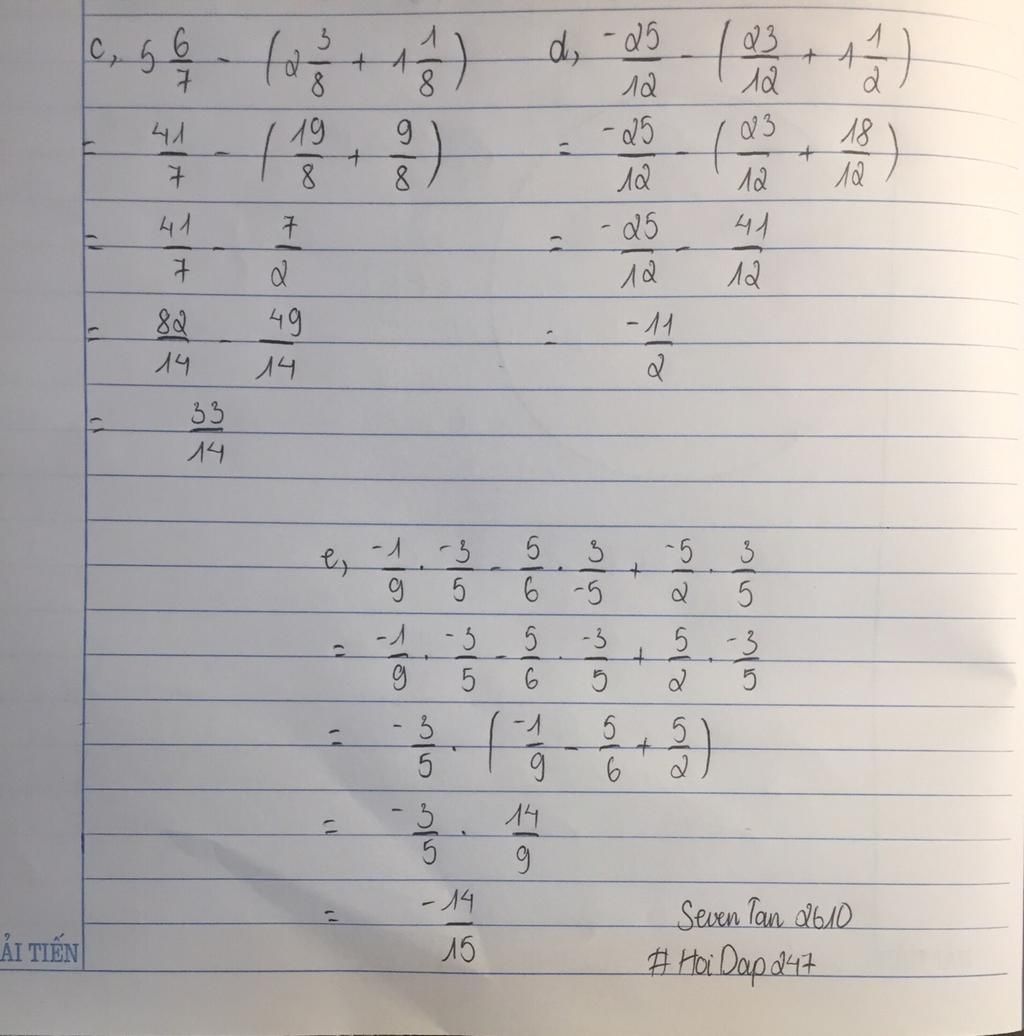 c, 5 6/7 - (2 3/8 + 1 1/8)
= 41/7 - (19/8 + 9/8)
= 41/7 - 7/2
= 82/14 - 49/14
= 33/14
d, -25/12 - (23/12 + 1 1/2)
= -25/12 - (23/12 + 18/12)
= -25/12 - 41/12
= -11/2
e, -1/9 . -3/5 - 5/6 . 3/-5 + -5/2 . 3/5
= -1/9 . -3/5 - 5/6 . -3/5 + 5/2 . -3/5
= -3/5 . (-1/9 - 5/6 + 5/2)
= -3/5 . 14/9
= -14/15
Seven Tan 2610
# Hoi Dap 247
ẢI TIẾN